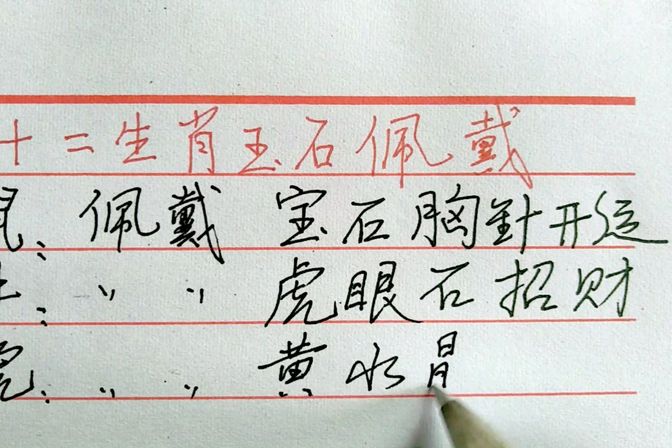 十二生肖玉石佩戴
鼠:佩戴 宝石胸針开运
牛:〃 〃 虎眼石招财
虎:〃 〃 黄水晶